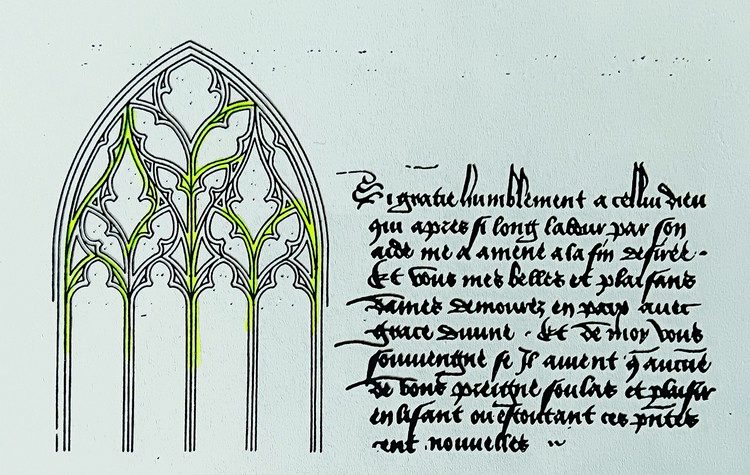 Si gratie humblement a celluy dieu
qui apres si long labour par son
aide me a amene a la fin desiree .
Et vous mes belles et plaisans
dames demourez en paix avec
grace divine . Et de moy vous
souviengne se Il avient q̄ aucūe
de vous preigne soulas et plaisir
en lisant ou escoutant ces pn̄tes
cent nouvelles ~